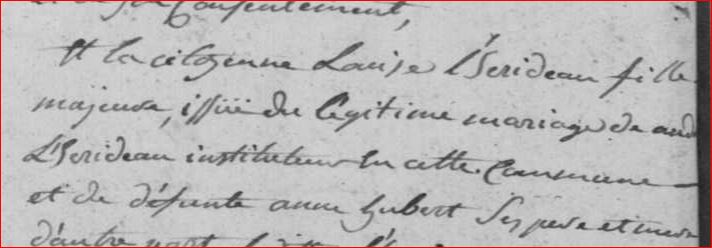 consentement,
Et la citoyenne Louise L'herideau fille
majeure, issüe du legitime mariage de and
L'herideau instituteur en cette Commune
et de défunte anne hubert Ses pere et mere
d'autre part